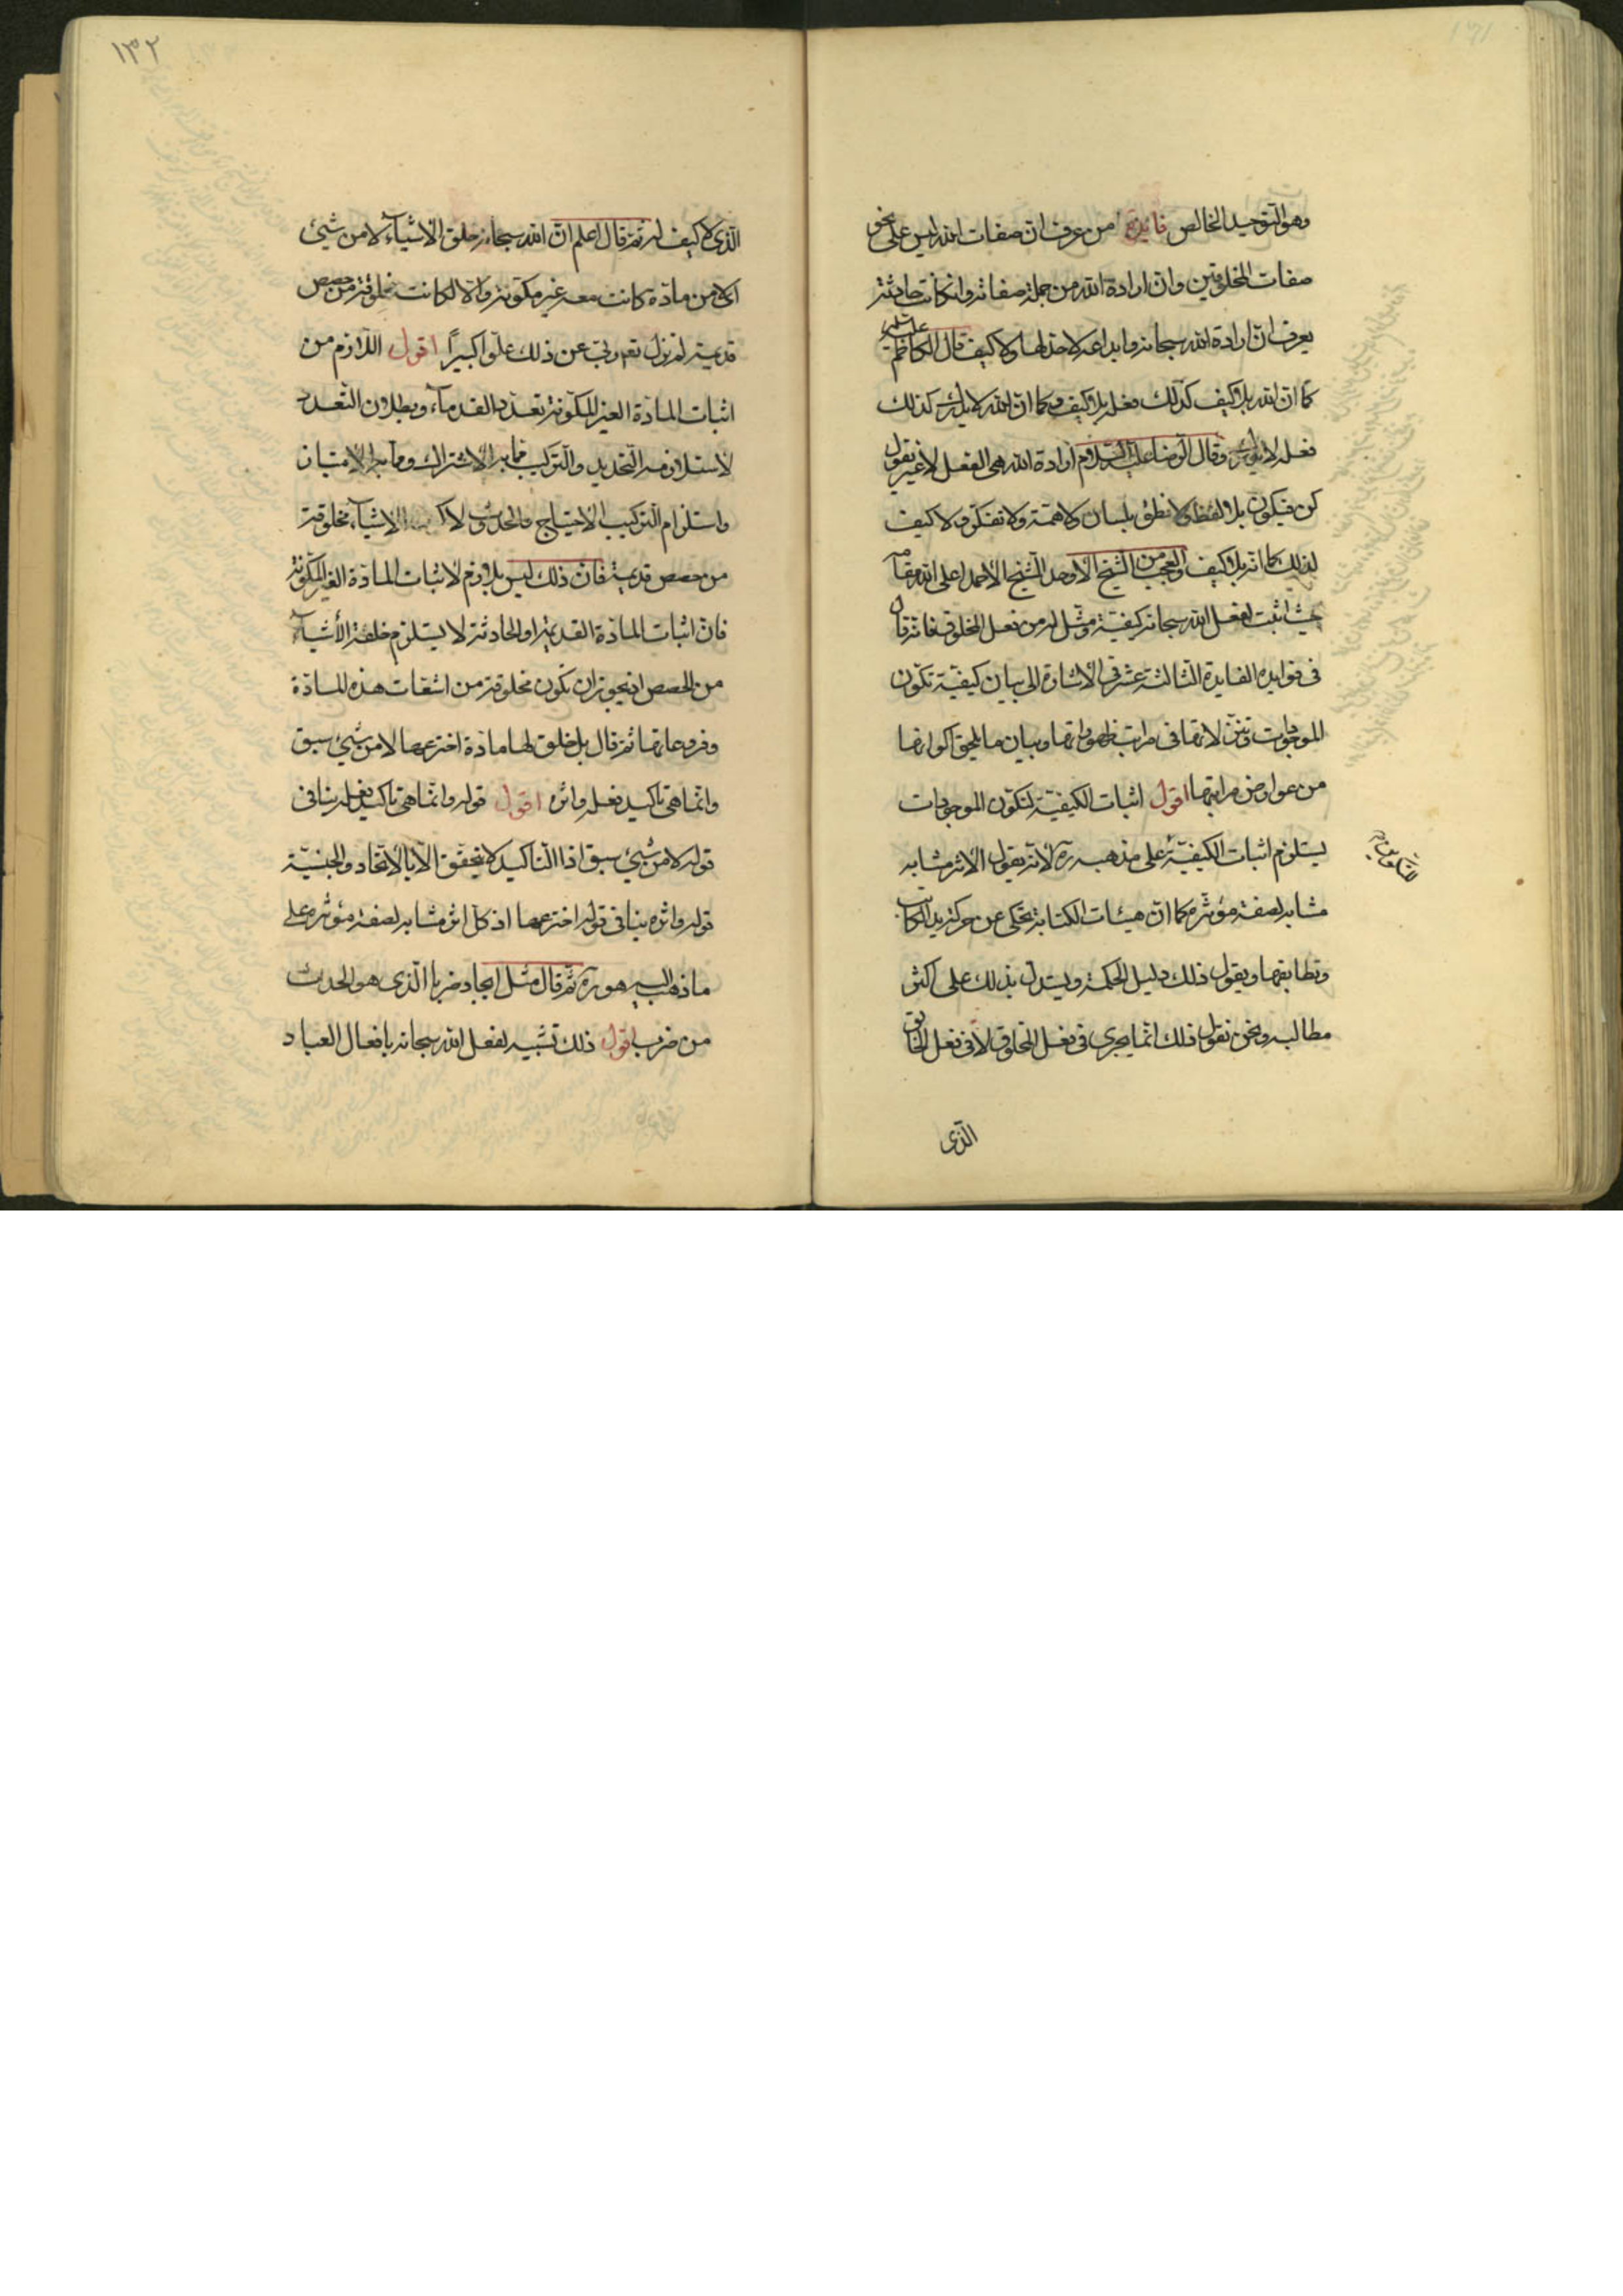 وهو التّوحيد الخالص فائدة من عرف انّ صفات الله ليس على نحو
صفات المخلوقين وانّ ارادة الله من جملة صفاته وان كانت حادثة
يعرف انّ ارادة الله سبحانه وابداعه لا حدّ لها ولا كيف قال الكاظم عليه السلام
كما انّ الله بلا كيف كذلك فعله بلا كيف وكما انّ الله لا يدرك كذلك
فعله لا يدرك وقال الرّضا عليه السّلام ارادة الله هي الفعل لا غير يقول
كن فيكون بلا لفظ ولا نطق بلسان ولا همّة ولا تفكّر ولا كيف
لذلك كما انّه بلا كيف والعجب من الشّيخ الأوحد الشّيخ الأحمد اعلى الله مقامه
حيث اثبت لفعل الله سبحانه كيفيّة ومثّل له من فعل المخلوق فانّه قال
في فوايده الفايدة الثّالثة عشر في الأشارة الى بيان كيفيّة تكوّن
الموجودات وتنزّلاتها في مراتب ظهوراتها وبيان ما يلحق اكوارها
من عوارض مراتبها اقول اثبات الكيفيّة لتكوّن الموجودات
يستلزم اثبات الكيفيّة على مذهبه ره لأنّه يقول الأثر مشابه
مشابه لصفة مؤثّره كما انّ هيئات الكتابة تحكي عن حركة يد الكاتب
وتطابقها ويقول ذلك دليل الحكمة ويستدلّ بذلك على اكثر
مطالبه ونحن نقول ذلك انّما يجري في فعل المخلوق لا في فعل الخالق
الّذي
١٣٢
الّذي لا كيف له ثمّ قال اعلم انّ الله سبحانه خلق الأشياء لا من شيئ
اي لا من مادّة كانت معه غير مكوّنة والّا لكانت مخلوقة من حصص
قديمة لم تزل تعالى ربّي عن ذلك علوّا كبيرًا اقول اللّازم من
اثبات المادّة الغير المكوّنة تعدّد القدماء وبطلان التّعدد
لاستلزامه التّحديد والتّركيب ممّا به الاشتراك وممّا به الامتياز
واستلزام التّركيب الاحتياج والحدوث لا الاشياء مخلوقة
من حصص قديمة فانّ ذلك ليس بلازم لاثبات المادّة الغير المكوّنة
فانّ اثبات المادّة القديمة او الحادثة لا يستلزم خلقة الأشياء
من الحصص اذ يجوز ان تكون مخلوقة من اشعّات هذه المادّة
وفروعاتها ثمّ قال بل خلق لها مادّة اخترعها لا من شيئ سبق
وانّما هي تاكيد فعله واثره اقول قوله وانّما هي تاكيد فعله ينافي
قوله لا من شيئ سبق اذا التّاكيد لا يتحقّق الّا بالأتّحاد والجنسيّة
قوله واثره ينافي قوله اخترعها اذ كلّ اثر مشابه لصفة مؤثّره على
ما ذهب اليه هو ره ثمّ قال مثل ايجاد ضربا الّذي هو الحدث
من ضرب اقول ذلك تشبيه لفعل الله سبحانه بافعال العباد